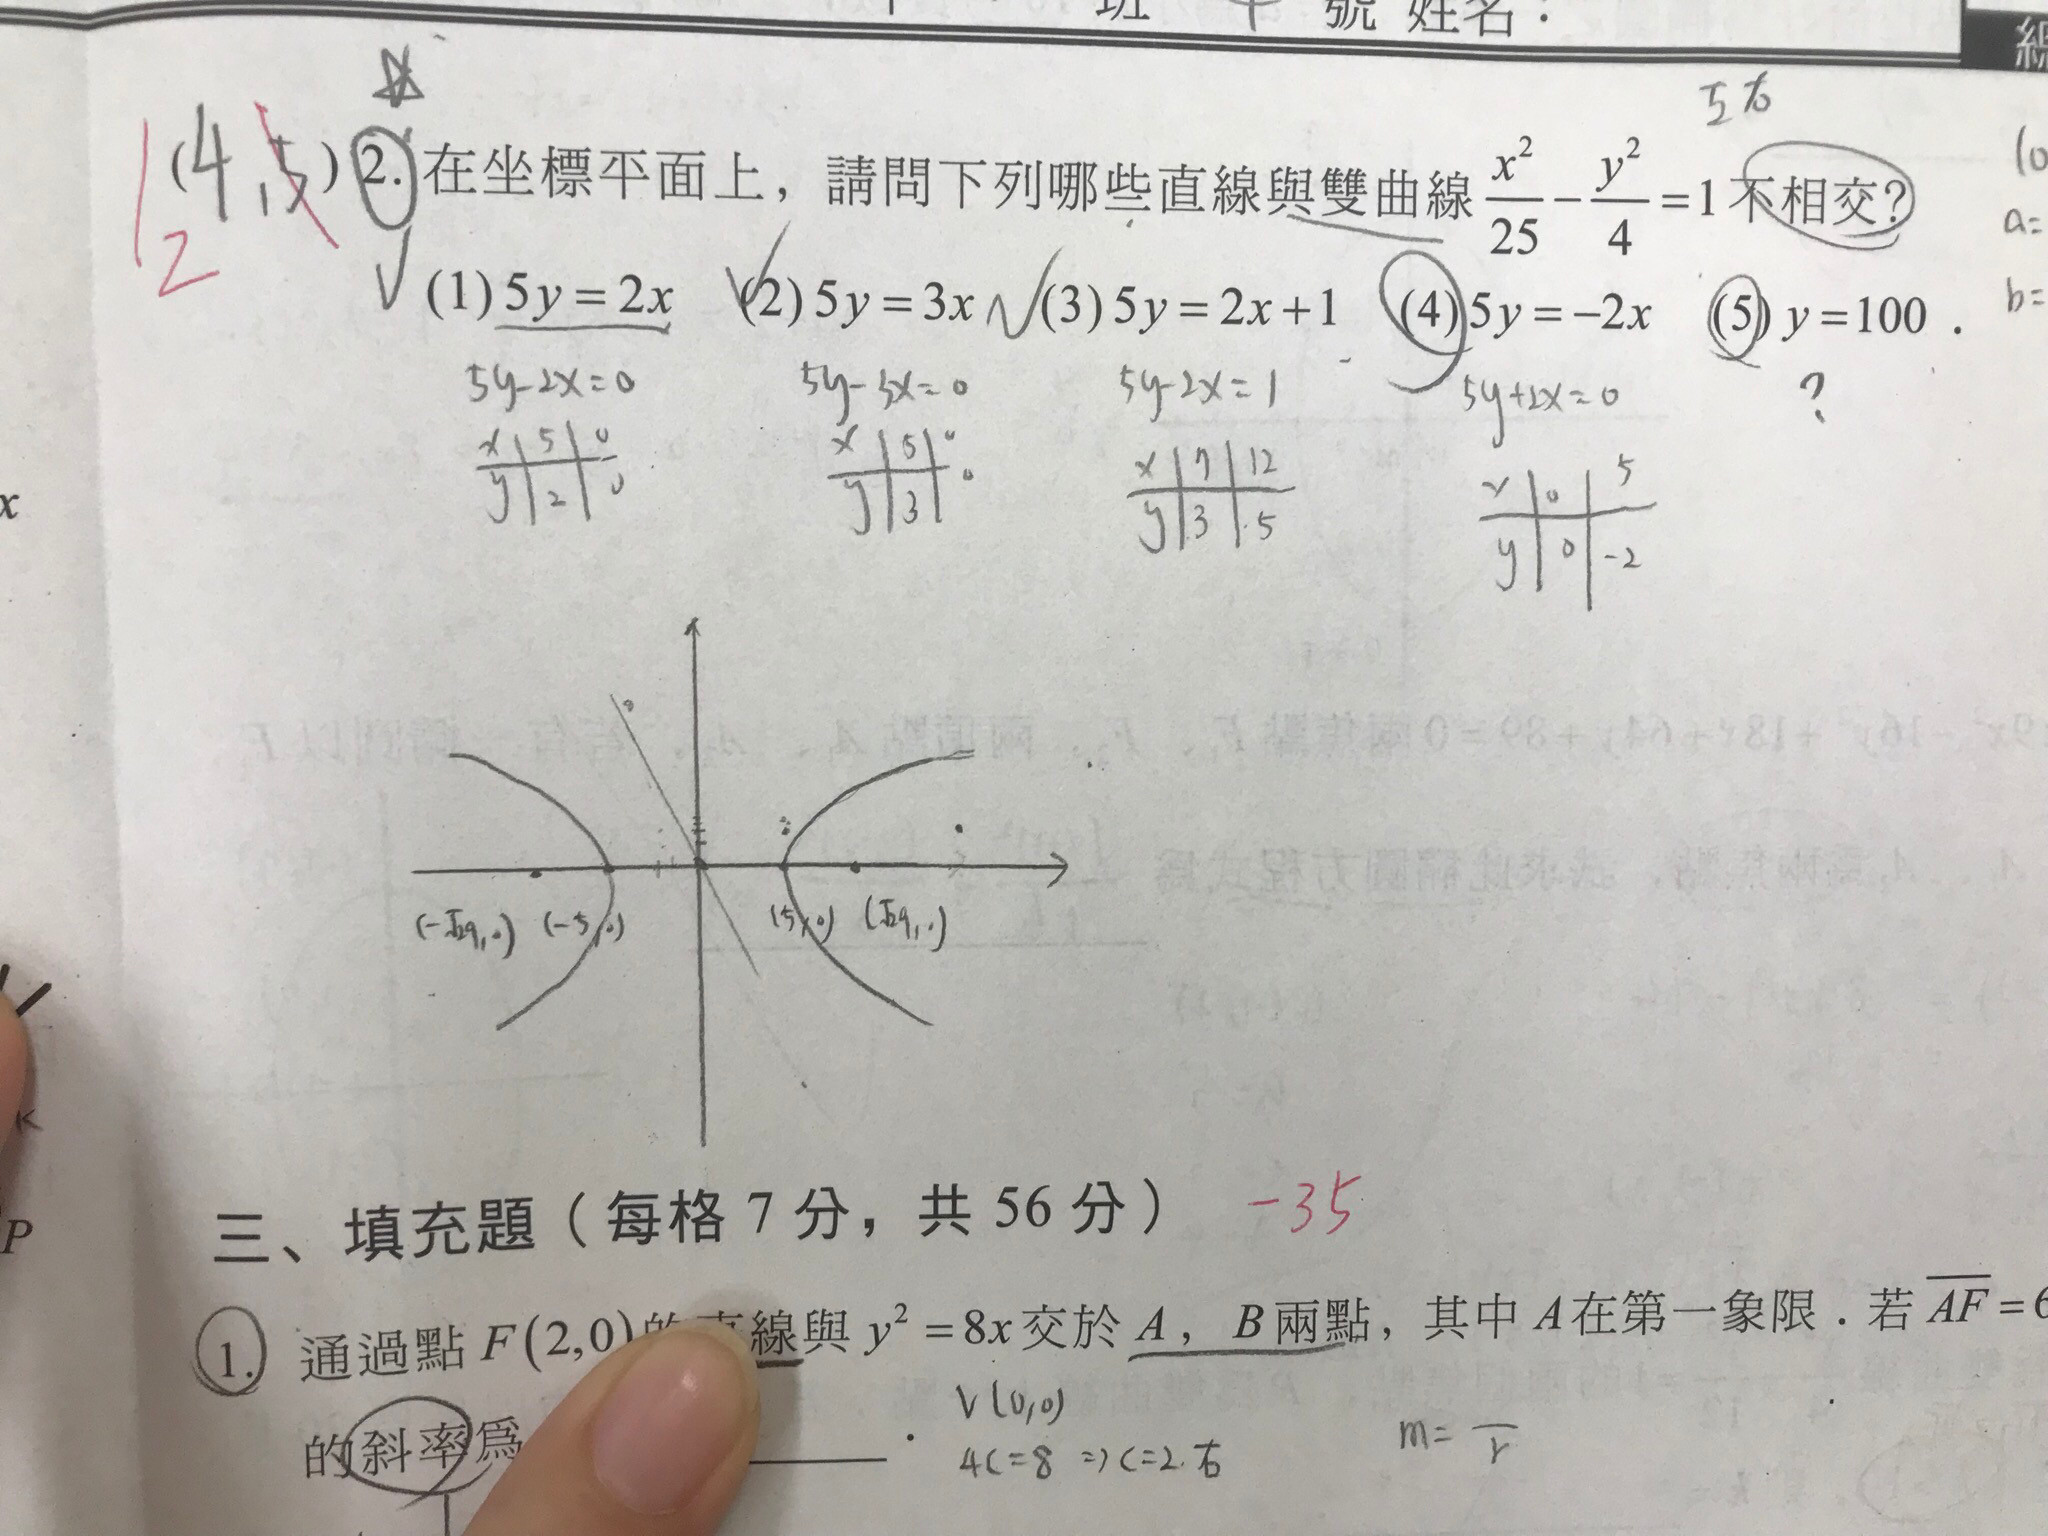 班 號 姓名：
左右
(4,5) 2. 在坐標平面上，請問下列哪些直線與雙曲線 x²/25 − y²/4 = 1 不相交?
12
a=
(1) 5y = 2x (2) 5y = 3x (3) 5y = 2x+1 (4) 5y = −2x (5) y = 100 .
b=
5y-2x=0 5y-3x=0 5y-2x=1 5y+2x=0 ?
x 5 0 x 5 0 x 7 12 x 0 5
y 2 0 y 3 0 y 3 5 y 0 -2
x
(-√29,0) (-5,0) (5,0) (√29,0)
P
三、填充題（每格 7 分，共 56 分） -35
1. 通過點 F(2,0) 的直線與 y² = 8x 交於 A，B 兩點，其中 A 在第一象限．若 AF = 6
V(0,0)
的斜率為 .
4c=8 => c=2 右 m=